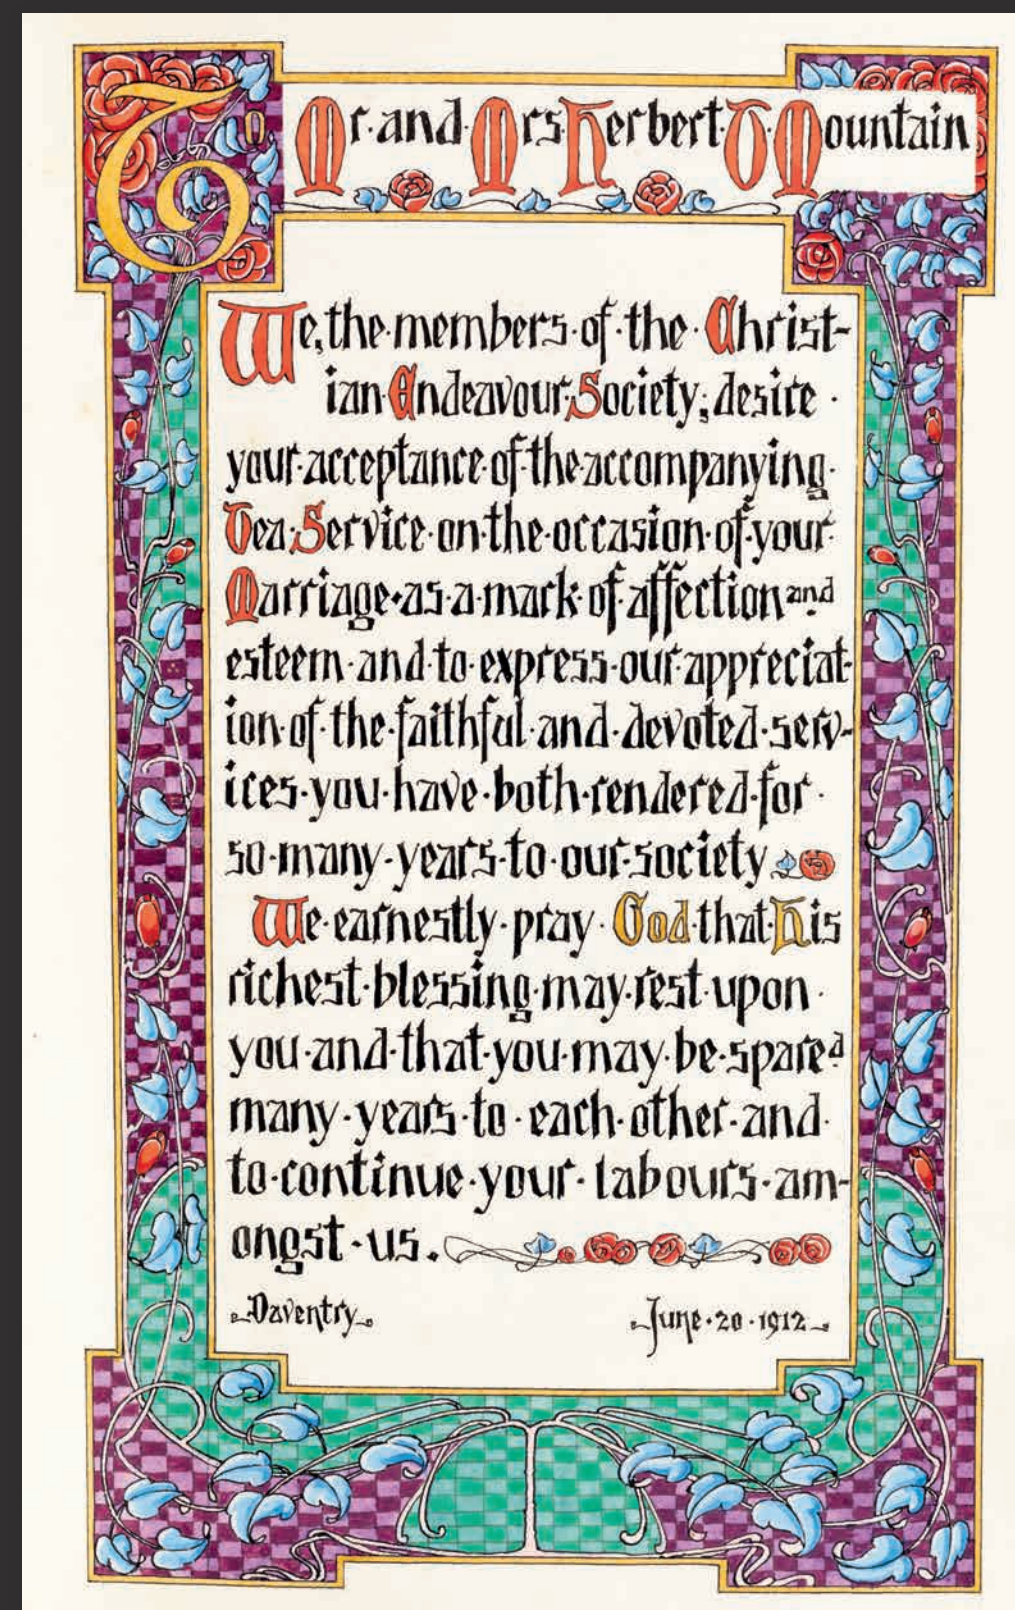 To Mr. and Mrs. Herbert T. Mountain
We, the members of the Christ-
ian Endeavour Society, desire
your acceptance of the accompanying
Tea Service on the occasion of your
Marriage as a mark of affection and
esteem and to express our appreciat-
ion of the faithful and devoted serv-
ices you have both rendered for
so many years to our society
We earnestly pray God that His
richest blessing may rest upon
you and that you may be spared
many years to each other and
to continue your labours am-
ongst us.
Daventry June 20 1912